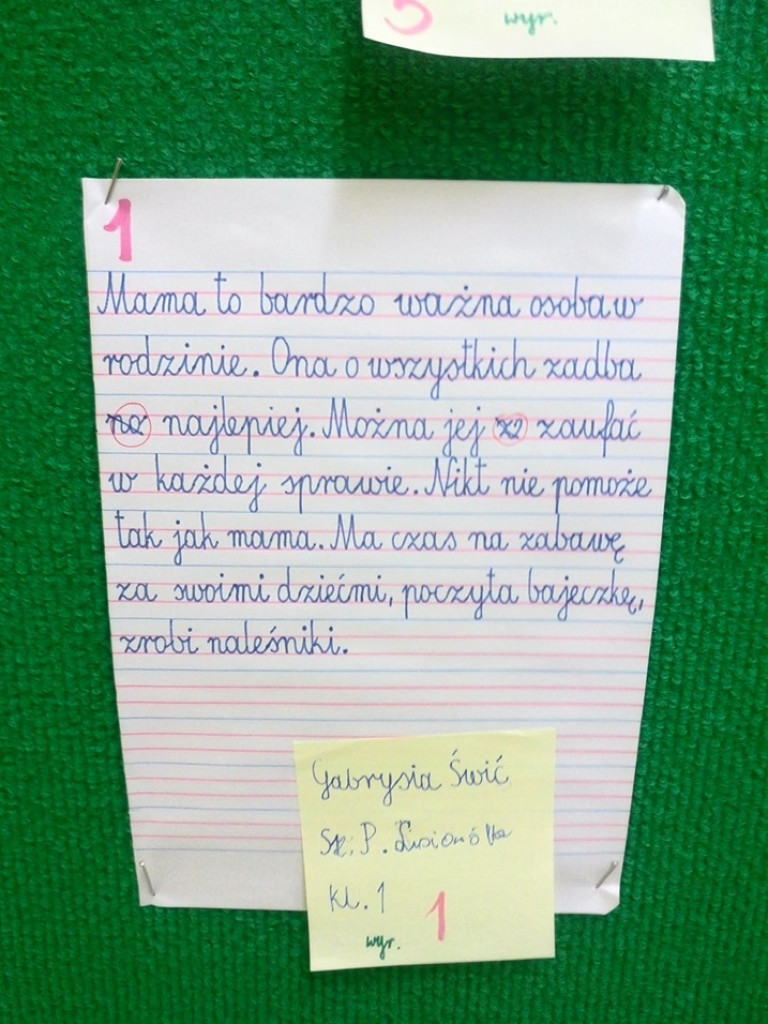 5
wyr.
1
Mama to bardzo ważna osoba w
rodzinie. Ona o wszystkich zadba
na najlepiej. Można jej za zaufać
w każdej sprawie. Nikt nie pomoże
tak jak mama. Ma czas na zabawę
za swoimi dziećmi, poczyta bajeczkę,
zrobi naleśniki.
Gabrysia Świć
Sz. P.
kl. 1
wyr.
1